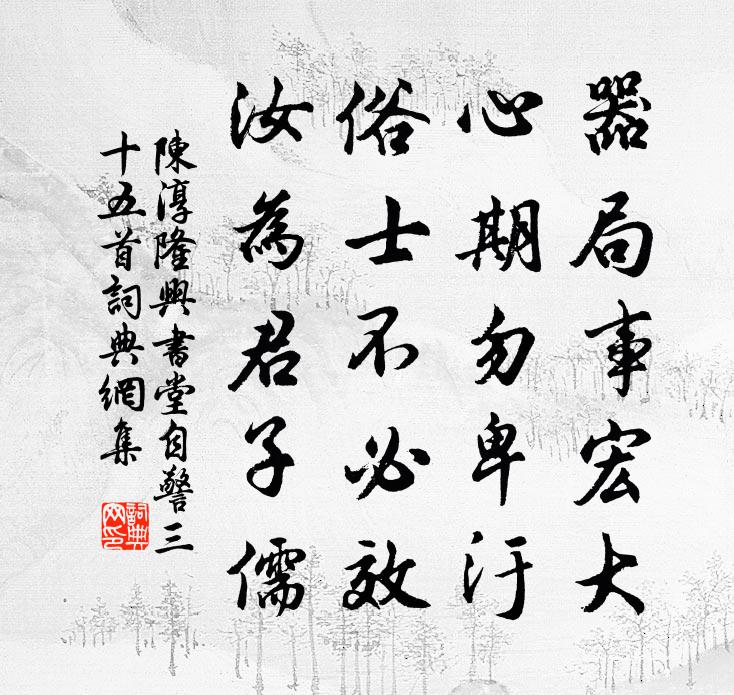 器局事宏大
心期勿卑汙
俗士不必效
汝為君子儒
陳淳隆興書堂自警三
十五首詞典網集
詞典
网印